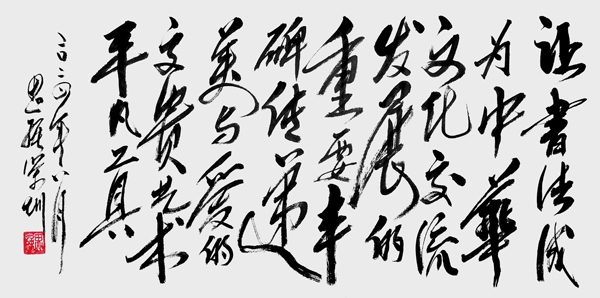 让書法成
为中華
文化交流
发展的
重要丰
碑传递
美与爱的
文贵艺术
平凡工具
二〇二四年八月